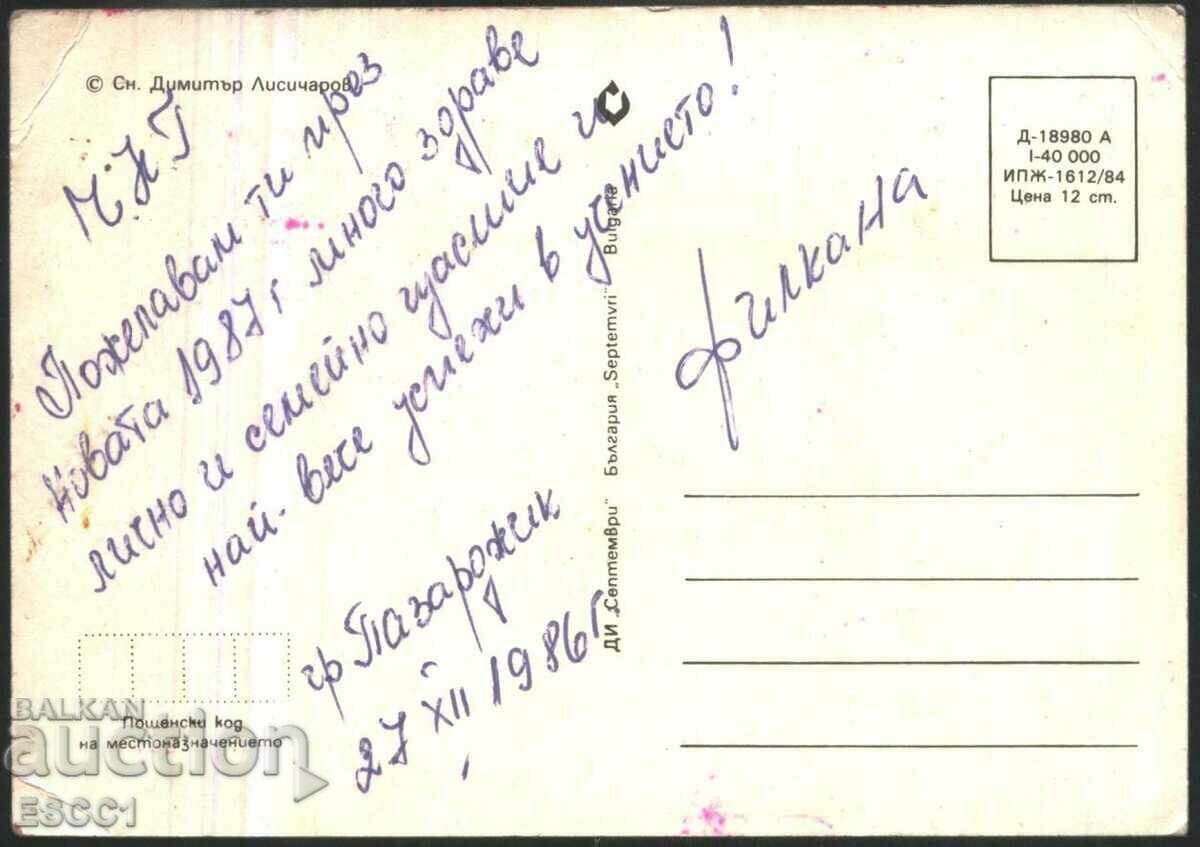 © Сн. Димитър Лисичаров
Ч.Н.Г
Пожелавам ти през
Новата 1987 г много здраве
лично и семейно щастие и
най-вече успехи в учението!
гр Пазарджик
27 XII 1986 г.
Филкана
Д-18980 А
I-40 000
ИПЖ-1612/84
Цена 12 ст.
ДИ „Септември" България „Septemvri" Bulgaria
Пощенски код
на местоназначението
BALKAN
auction
ESCC1